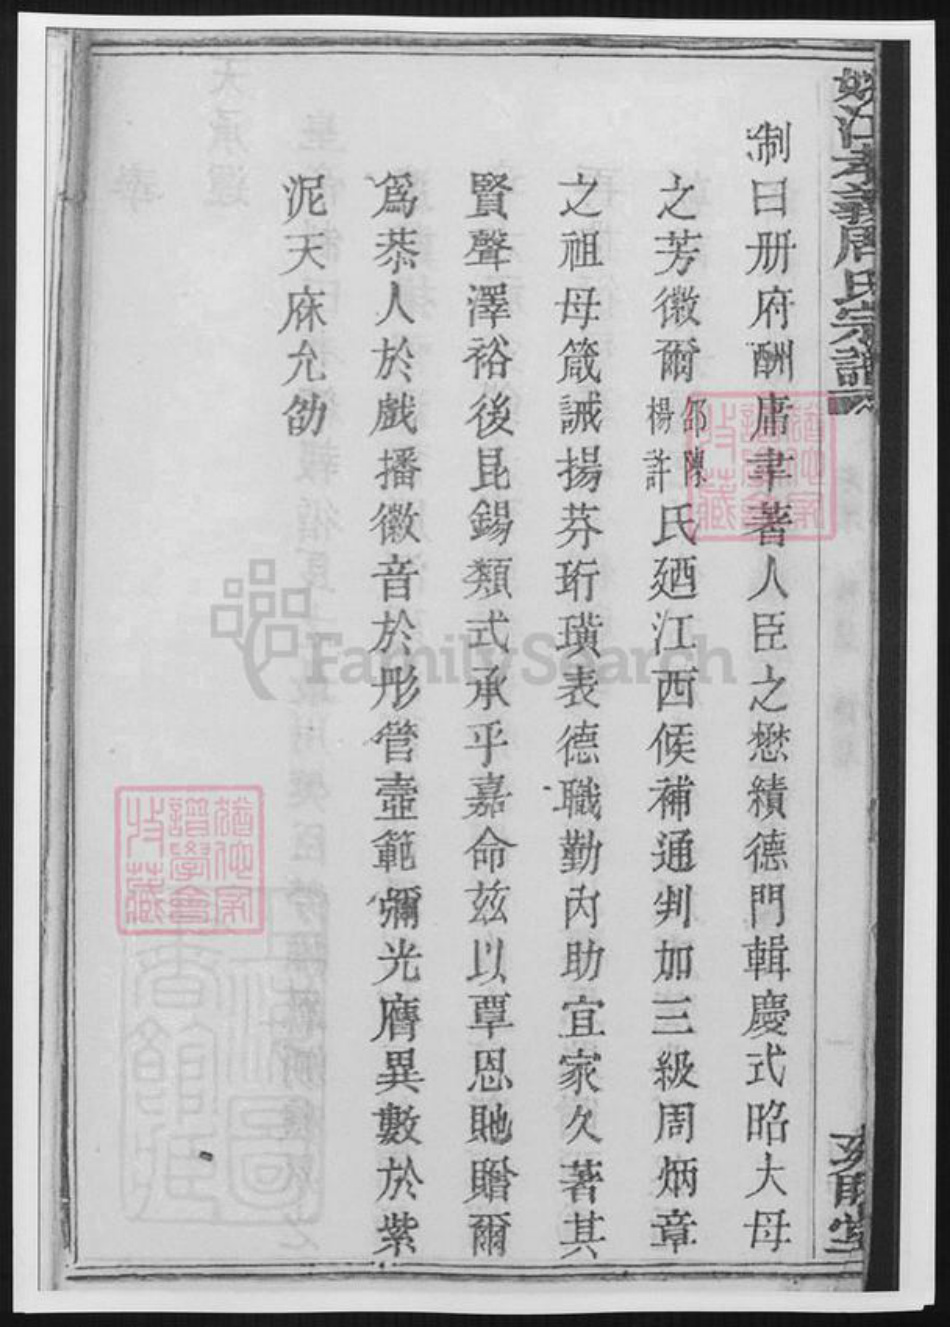 姚江孝義周氏宗譜
制曰册府酬庸聿著人臣之懋績德門輯慶式昭大母
之芳徽爾邵陳楊許氏廼江西候補通判加三級周炳章
之祖母箴誡揚芬珩璜表德職勤內助宜家久著其
賢聲澤裕後昆錫類式承乎嘉命兹以覃恩貤贈爾
為恭人於戲播徽音於彤管壼範彌光膺異數於紫
泥天庥允劭
FamilySearch